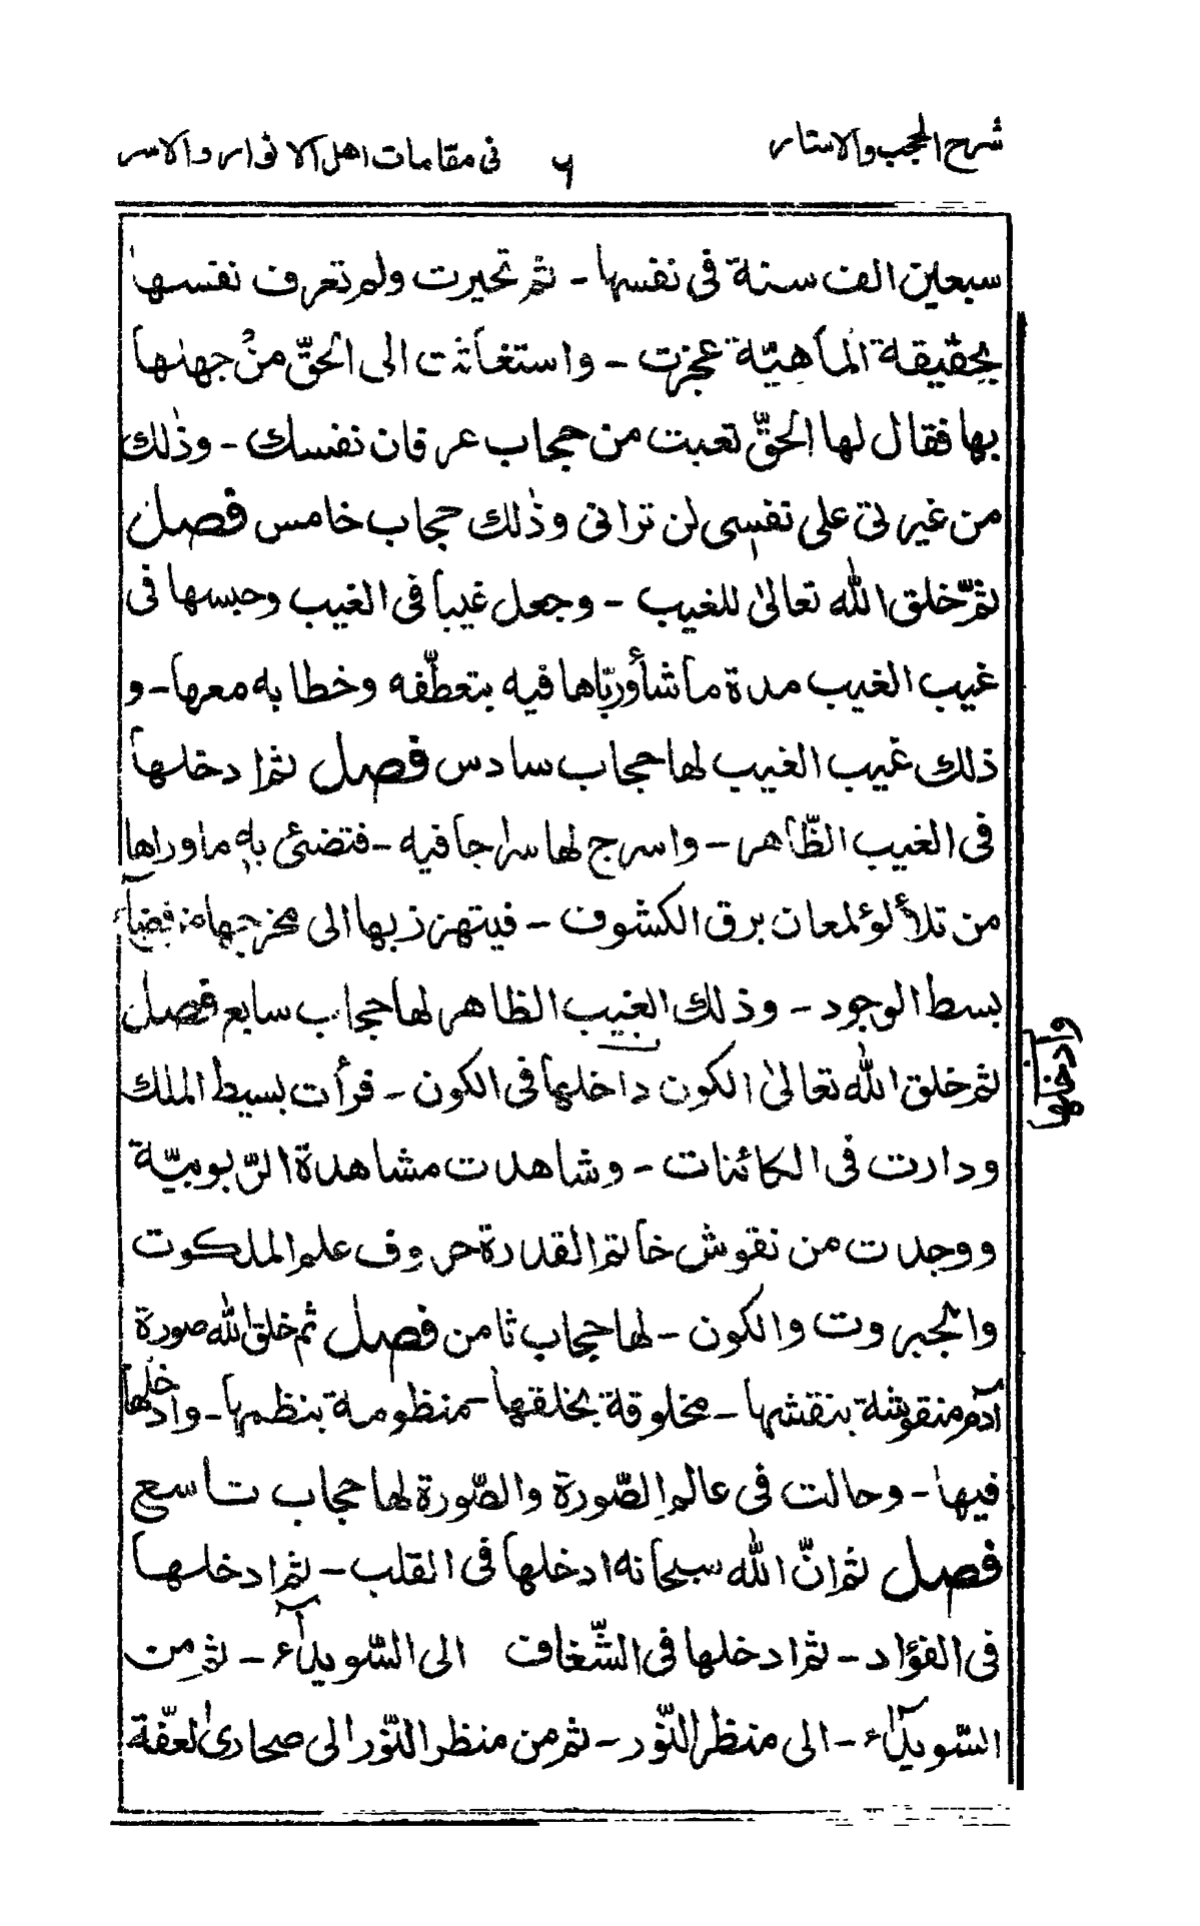 شرح الحجب والاستار ٦ فى مقامات اهل الانوار والاسر
سبعين الف سنة فى نفسها - ثم تحيرت ولم تعرف نفسها
بحقيقة الماهيّة عجزت - واستغاثت الى الحقّ من جهتها
بها فقال لها الحقّ تعبت من حجاب عرفان نفسك - وذلك
من غيرتى على نفسى لن ترانى وذلك حجاب خامس فصل
ثمّ خلق الله تعالىٰ للغيب - وجعل غيبا فى الغيب وحبسها فى
غيب الغيب مدة ما شأ وربّاها فيه بتعطّفه وخطابه معها - و
ذلك غيب الغيب لها حجاب سادس فصل ثم ادخلها
فى الغيب الظّاهر - واسرج لها سراجا فيه - فتضئى به ماوراها
من تلألؤ لمعان برق الكشوف - فينتهز بها الى مخرجها من فضاء
بسط الوجود - وذلك الغيب الظاهر لها حجاب سابع فصل
ثم خلق الله تعالىٰ الكون داخلها فى الكون - فرأت بسيط الملك
وادخلها
ودارت فى الكائنات - وشاهدت مشاهدة الرّبوبيّة
ووجدت من نقوش خاتم القدرة حروف علم الملكوت
والجبروت والكون - لها حجاب ثامن فصل ثم خلق الله صورة
آدم منقوشة بنقشها - مخلوقة بخلقها - منظومة بنظمها - وادخلها
فيها - وحالت فى عالم الصّورة والصّورة لها حجاب تاسع
فصل ثم انّ الله سبحانه ادخلها فى القلب - ثم ادخلها
فى الفؤاد - ثم ادخلها فى الشّغاف الى السّويدآء - ثم من
السّويدآء - الى منظر النّور - ثم من منظر النّور الى صحارى لعفّة